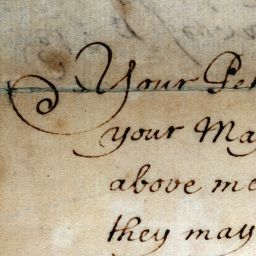 Your Pe
your Ma
above me
they may